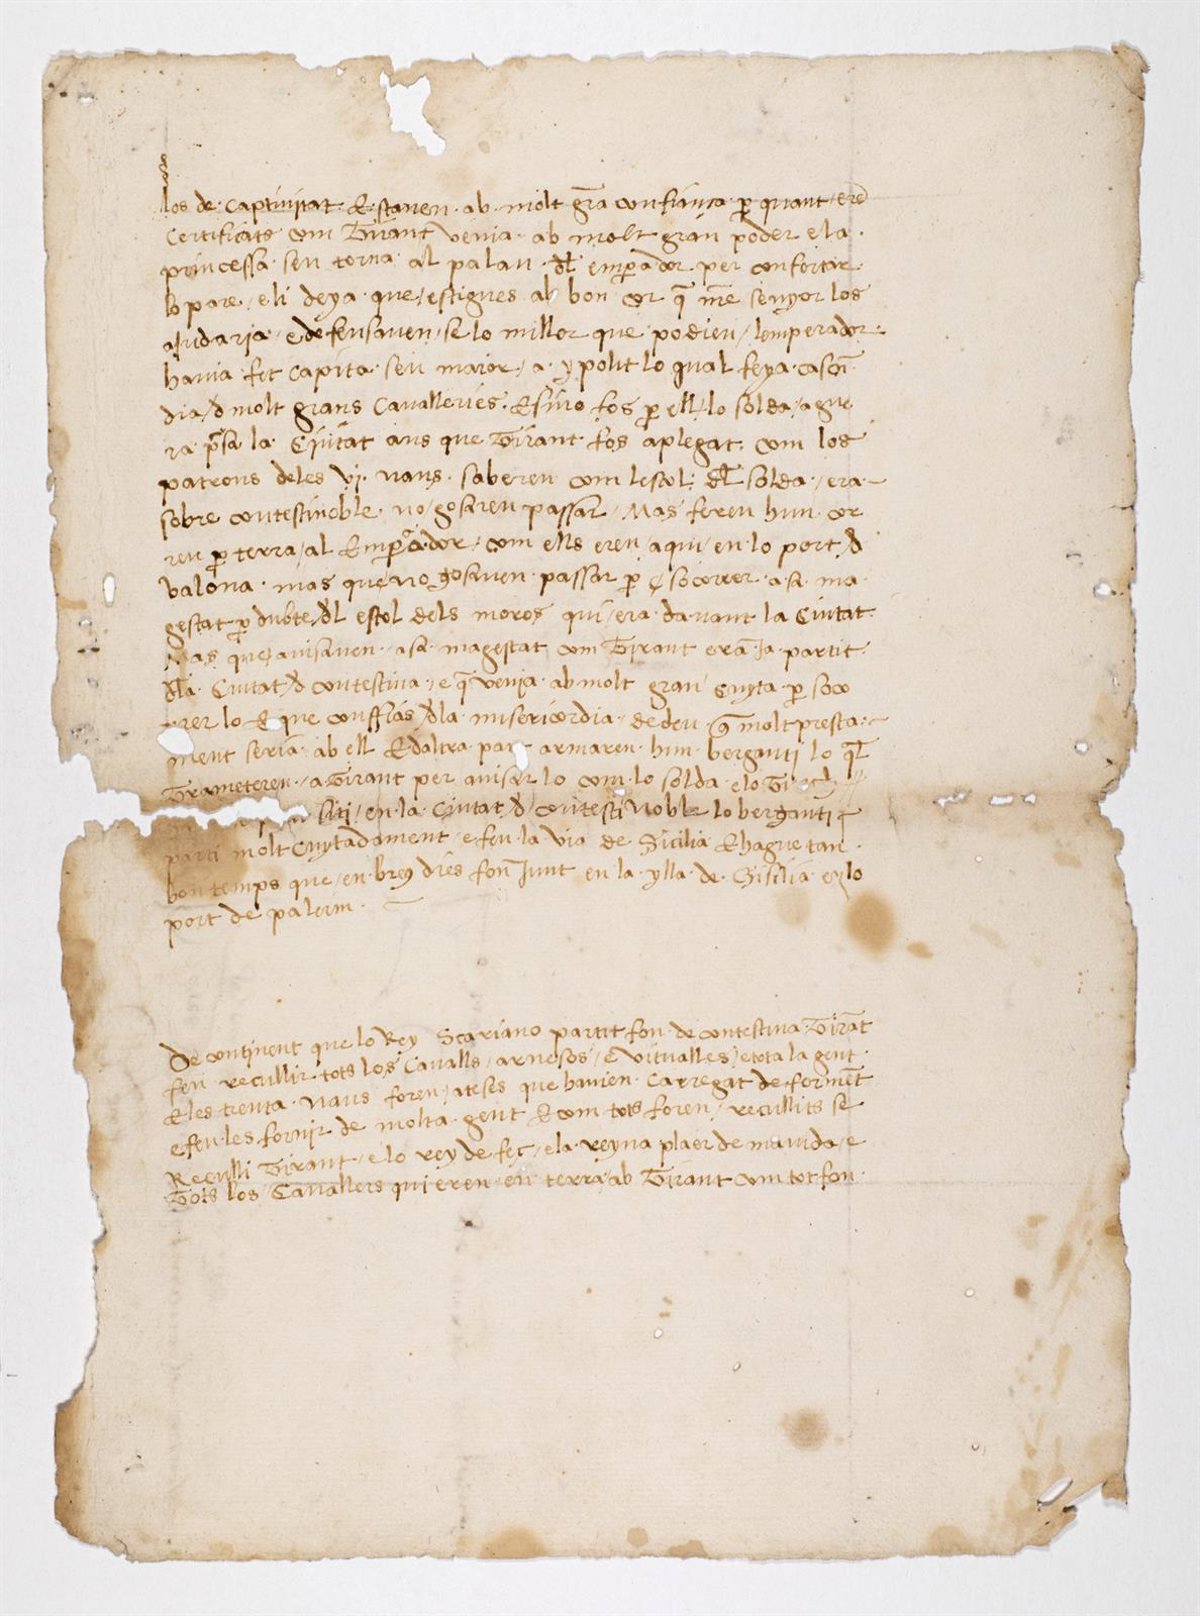 los de captiuitat E stauen ab molt gra confiança per quant ere
Certificats com Tirant venia ab molt gran poder e la
princessa sen torna al palau dl emperador per confortar
lo pare e li deya que estigues ab bon cor q nre senyor los
ajudaria e defensauen se lo millor que podien lemperador
hauia fet capita seu maior a ypolit lo qual feya cascu
dia d molt grans Caualleries E sino fos per ell lo solda ague
ra presa la Ciutat ans que Tirant fos aplegat com los
patrons deles vi naus saberen com lestol dl solda era
sobre contestinoble no gosaren passar Mas feren hun cor
reu per terra al Emperador com ells eren aqui en lo port d
valona mas que no gosauen passar per socorrer a sa ma
gestat per dubte dl estol dels moros qui era dauant la Ciutat
Mas que auisauen a sa magestat com Tirant era ja partit
dla Ciutat d contestina e q venia ab molt gran cuyta per soco
rrer lo E que confias dla misericordia de deu q molt presta
ment seria ab ell E daltra part armaren hun berganti lo ql
Trameteren a Tirant per auisar lo com lo solda e lo
siti en la Ciutat d contesti Noble lo berganti
parti molt cuytadament e feu la via de Sicilia E hague tan
bon temps que en breus dies fon Junt en la ylla de Sisilia en lo
port de palerm
De continent que lo Rey Scariano partit fon de contestina Tirat
feu recullir tots los Caualls arnesos e vitualles e tota la gent
E les trenta naus foren ateses que hauien Carregat de forment
e feu les fornir de molta gent E com tots foren recullits se
Reculli Tirant e lo rey de feç e la reyna plaer de mauida e
Tots los Cauallers qui eren en terra ab Tirant com tot fon